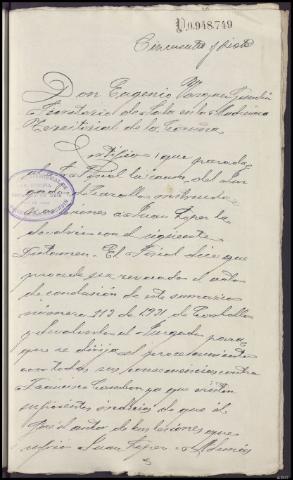 D.0.948.749
Cincuenta y siete
Don Eugenio Vazquez
Secretario de Sala en la Audiencia
Territorial de la Coruña.
Certifico: que pasada
al Fiscal la causa del Juz
gado de Carballo instruida
lesiones a Juan Lopez la
devolvio con el siguiente
Dictamen. El Fiscal dice que
procede sea revocado el auto
de conclusión de este sumario
número 112 de 1921 de Carballo
y devolverlo al Juzgado para
que se dirija el procedimiento
con todas sus consecuencias contra
Francisco ya que existen
suficientes indicios de que el
fué el autor de las lesiones que
sufrió Juan Lopez. Además